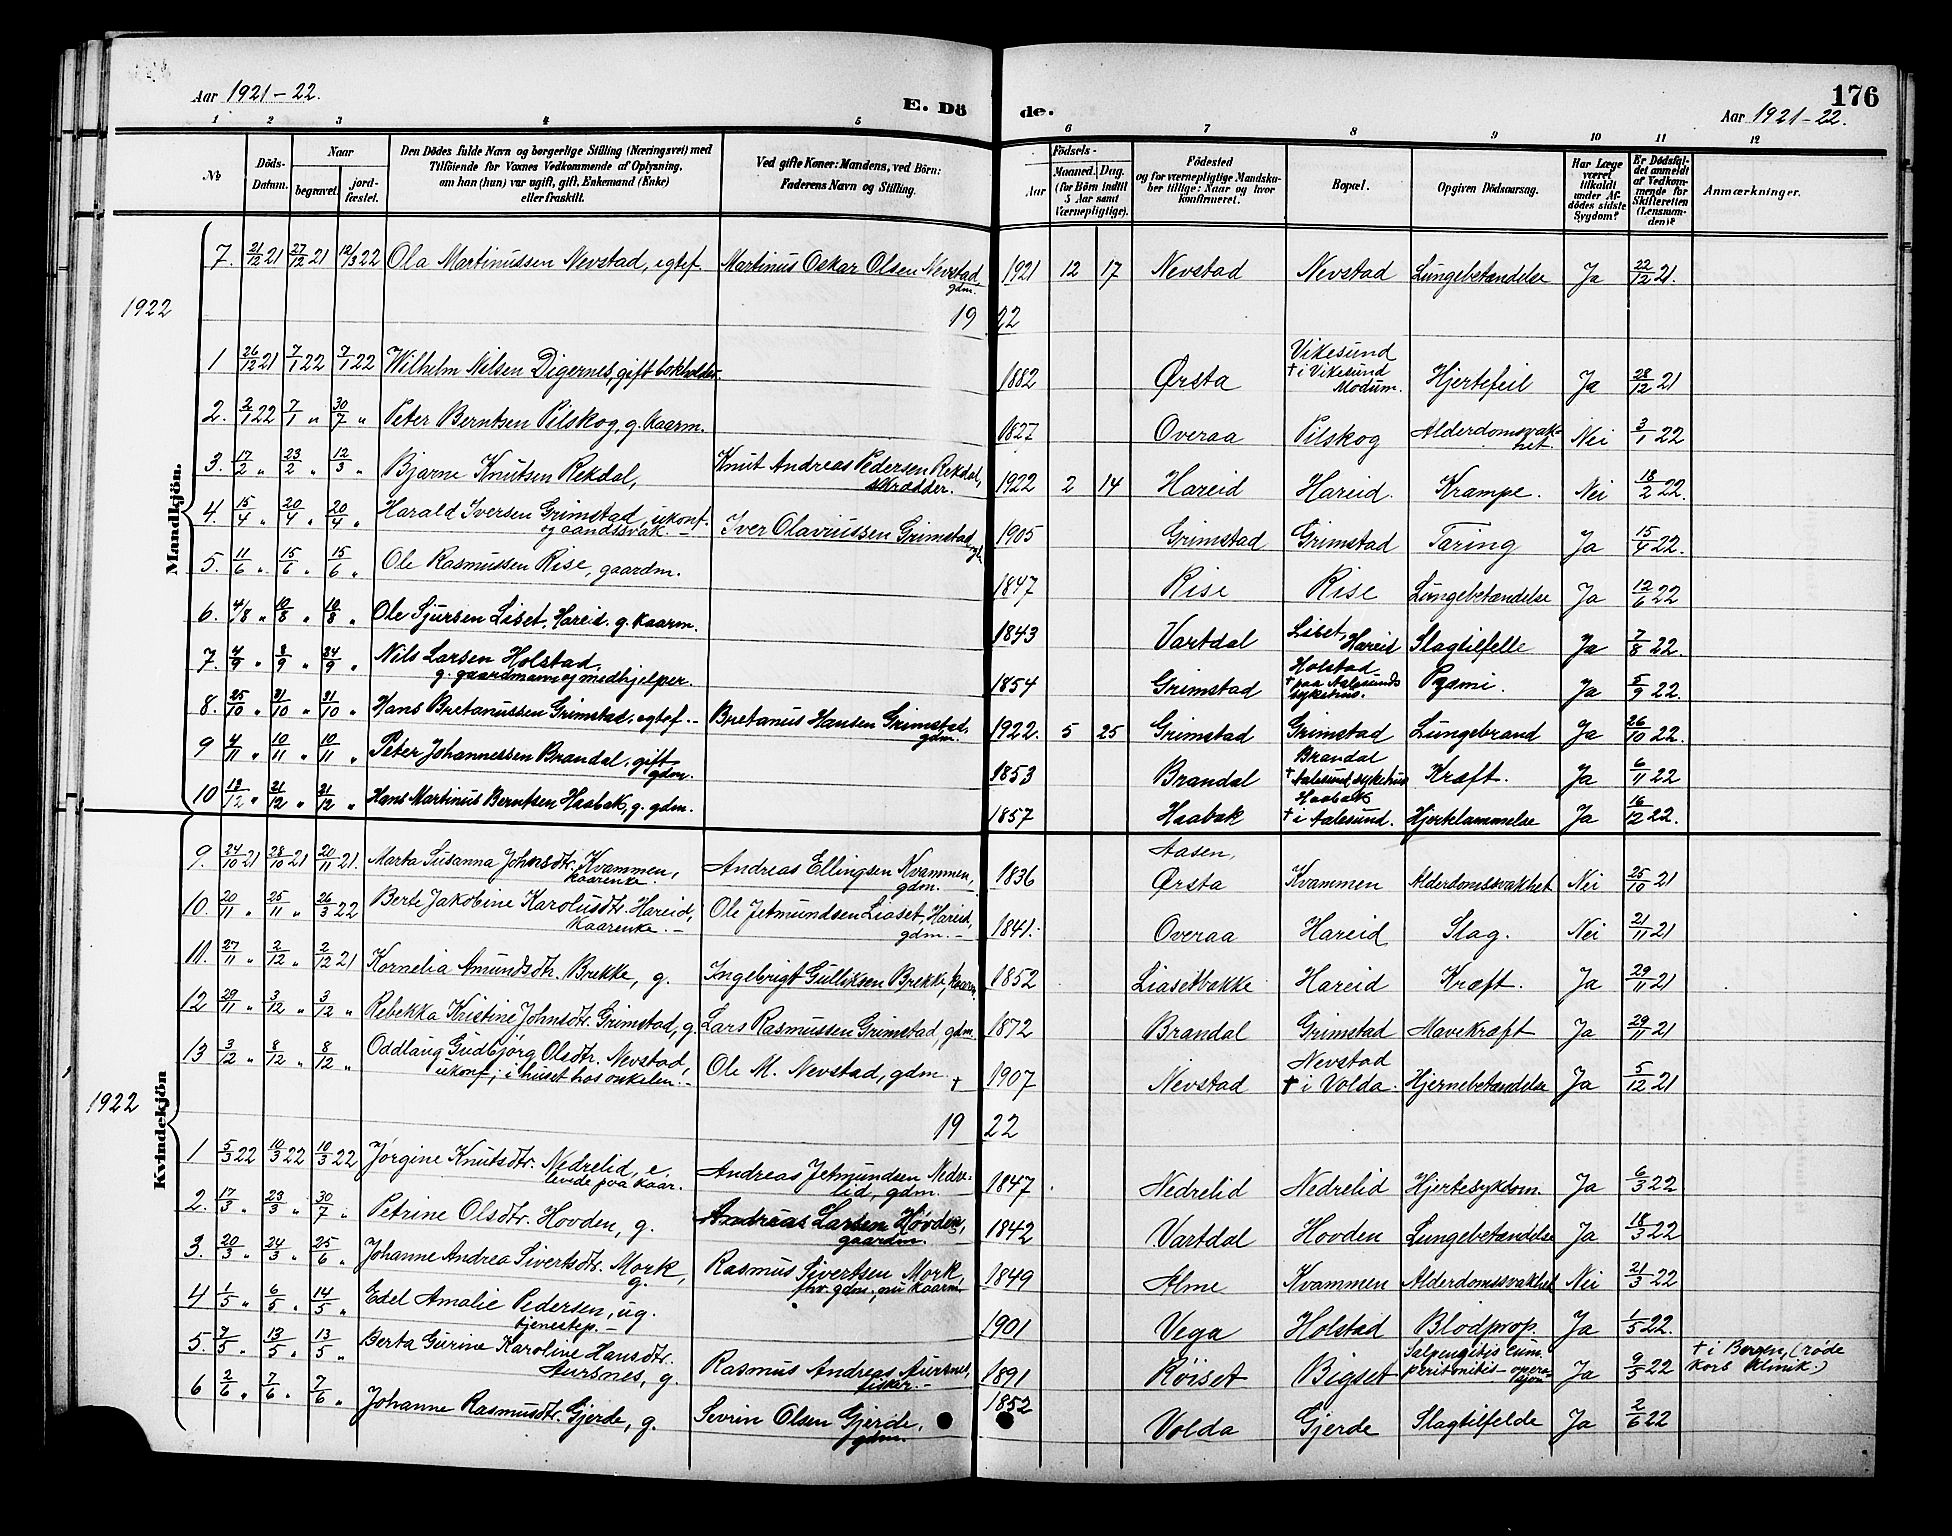 Aar 1921-22.
E. Dö
de.
176
Aar 1921-22.
1 2 3 4 5 6 7 8 9 10 11 12
No
Döds-Datum.
Naar
begravet.
jord-fæstet.
Den Dödes fulde Navn og borgerlige Stilling (Næringsvei) med
Tilföiende for Voxnes Vedkommende af Oplysning,
om han (hun) var ugift, gift, Enkemand (Enke)
eller fraskilt.
Ved gifte Koner: Mandens, ved Börn:
Faderens Navn og Stilling.
Födsels-
Aar
Maaned. Dag.
(for Börn indtil
5 Aar samt
Værnepligtige).
Födested
og for værnepligtige Mandska-
ber tillige: Naar og hvor
konfirmeret.
Bopæl.
Opgiven Dödsaarsag.
Har Læge
været
tilkaldt
under Af-
dödes sidste
Sygdom?
Er Dödsfal-
det anmeldt
af Vedkom-
mende for
Skifteretten
(Lensman-
den)?
Anmærkninger.
Mandkjön.
7. 21/12 21 27/12 21 12/3 22 Ola Martinussen Nevstad, egtef. Martinus Oskar Olsen Nevstad gdm. 1921 12 17 Nevstad Nevstad Lungebetændelse Ja 22/12 21.
1922
19 22
1 26/12 21 7/1 22 7/1 22 Wilhelm Nilsen Digernes, gift bokholder. 1882 Ørsta Vikesund † i Vikesund Modum. Hjertefeil Ja 28/12 21
2. 2/1 22 7/1 " 30/7 " Peter Berntsen Pilskog, g. kaarm. 1827 Overaa Pilskog Alderdomssvakhet Nei 3/1 22
3. 17/2 " 23/2 " 12/3 " Bjarne Knutsen Rekdal, Knut Andreas Pedersen Rekdal, skrædder. 1922 2 14 Hareid Hareid. Krampe. Nei 18/2 22.
4. 15/4 " 20/4 " 20/4 " Harald Iversen Grimstad, ukonf. og aandssvak. - Iver Olavussen Grimstad 1905 Grimstad Grimstad Tæring Ja 15/4 22.
5. 11/6 " 15/6 " 15/6 " Ole Rasmussen Rise, gaardm. 1847 Rise Rise Lungebetændelse Ja 12/6 22
6. 4/8 " 10/8 " 10/8 " Ole Sjursen Liset, Hareid. g. kaarm. 1843 Vartdal Liset, Hareid Slagtilfelle Ja 7/8 22.
7. 4/9 " 8/9 " 24/9 " Nils Larsen Holstad, g. gaardmann og medhjelper. 1854 Grimstad Holstad † paa Aalesunds sykehus. Pyæmi. Ja 5/9 22.
8. 25/10 " 31/10 " 31/10 " Hans Bretanussen Grimstad, egtef. - Bretanus Hansen Grimstad, gdm. 1922. 5 25 Grimstad Grimstad Lungebrand Ja 26/10 22.
9 4/11 " 10/11 " 10/11 " Peter Johannessen Brandal, gift gdm. 1853 Brandal Brandal † Aalesund sykehus Kræft. Ja 6/11 22
10 13/12 " 21/12 " 21/12 " Hans Martinus Berntsen Haabak, g. gdm. 1857 Haabak Haabak † i Aalesund. Hjertelammelse Ja 16/12 22.
Kvindekjön
9. 24/10 21 28/10 21 20/11 21. Marta Susanna Johnsdtr. Kvammen, kaarenke. Andreas Ellingsen Kvammen, gdm. 1836 Aasen, Ørsta Kvammen Alderdomssvakhet Nei 25/10 21
10. 20/11 " 25/11 " 26/3 22 Berte Jakobine Karolusdtr. Hareid, kaarenke. - Ole Jetmundsen Liaset, Hareid, gdm. - 1841. Overaa Hareid Slag. Nei 21/11 21
11. 27/11 " 2/12 " 2/12 21 Kornelia Amundsdtr. Brekke, g. Ingebrigt Gulliksen Brekke, kaarm. 1852 Liasetbakke Hareid Kræft. Ja 29/11 21
12 29/11 " 3/12 " 3/12 " Rebekka Kristine Johnsdtr. Grimstad, g. Lars Rasmussen Grimstad, gdm. 1872 Brandal Grimstad Mavekræft Ja 29/11 21
13 3/12 " 8/12 " 8/12 " Oddlaug Gudbjørg Olsdtr. Nevstad, ukonf; i huset hos onkelen. - Ole M. Nevstad, gdm. † 1907 Nevstad Nevstad † i Volda. Hjernebetændelse Ja 5/12 21
1922
19 22
1 5/3 22 10/3 22 10/3 22 Jørgine Knutsdtr. Nedrelid, e. levde paa kaar. Andreas Jetmundsen Nedrelid, gdm. 1847 Nedrelid Nedrelid Hjertesykdom. Ja 6/3 22
2. 17/3 " 23/3 " 30/7 " Petrine Olsdtr. Hovden, g. Andreas Larsen Hovden, gaardm. 1842 Vartdal Hovden Lungebetændelse Ja 18/3 22
3. 20/3 " 24/3 " 25/6 " Johanne Andrea Sivertsdtr. Mork, g. Rasmus Sivertsen Mork, fhv. gdm., nu kaarm. 1849 Alme Kvammen Alderdomssvakhet Nei 21/3 22
4 1/5 " 6/5 " 14/5 " Edel Amalie Pedersen, ug. tjenestep. - 1901 Vega Holstad Blodprop. Ja 1/5 22.
5. 7/5 " 13/5 " 13/5 " Berta Gurine Karoline Hansdtr. Aursnes, g. Rasmus Andreas Aursnes, fisker. - 1891 Røiset Bigset Salpengitis cum peritonitis - operasjon - Ja 9/5 22 † i Bergen, (røde kors klinik.)
6 2/6 " 7/6 " 7/6 " Johanne Rasmusdtr. Gjerde, g. Sevrin Olsen Gjerde, gdm. 1852 Volda Gjerde Slagtilfelde Ja 2/6 22